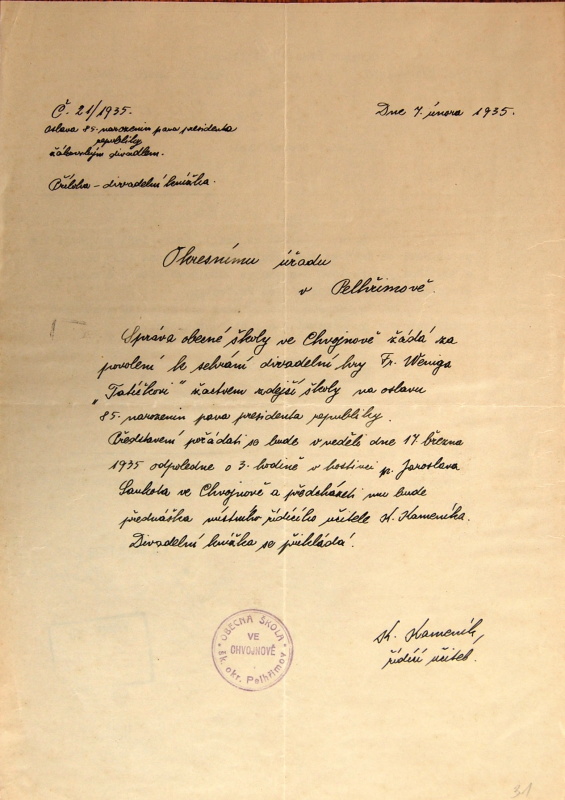 Č. 21/1935.
Dne 7. února 1935.
Oslava 85. narozenin pana presidenta
republiky
žákovským divadlem.
Příloha - divadelní knížka.
Okresnímu úřadu
v Pelhřimově.
Správa obecné školy ve Chvojnově žádá za
povolení k sehrání divadelní hry Fr. Weniga
„Tatíčkovi" žactvem zdejší školy na oslavu
85. narozenin pana presidenta republiky.
Představení pořádati se bude v neděli dne 17. března
1935 odpoledne o 3. hodině v hostinci p. Jaroslava
ve Chvojnově a předcházeti mu bude
přednáška místního řídícího učitele K. Kameníka.
Divadelní knížka se přikládá.
K. Kameník,
řídící učitel.
OBECNÁ ŠKOLA
VE
CHVOJNOVĚ
šk. okr. Pelhřimov
31